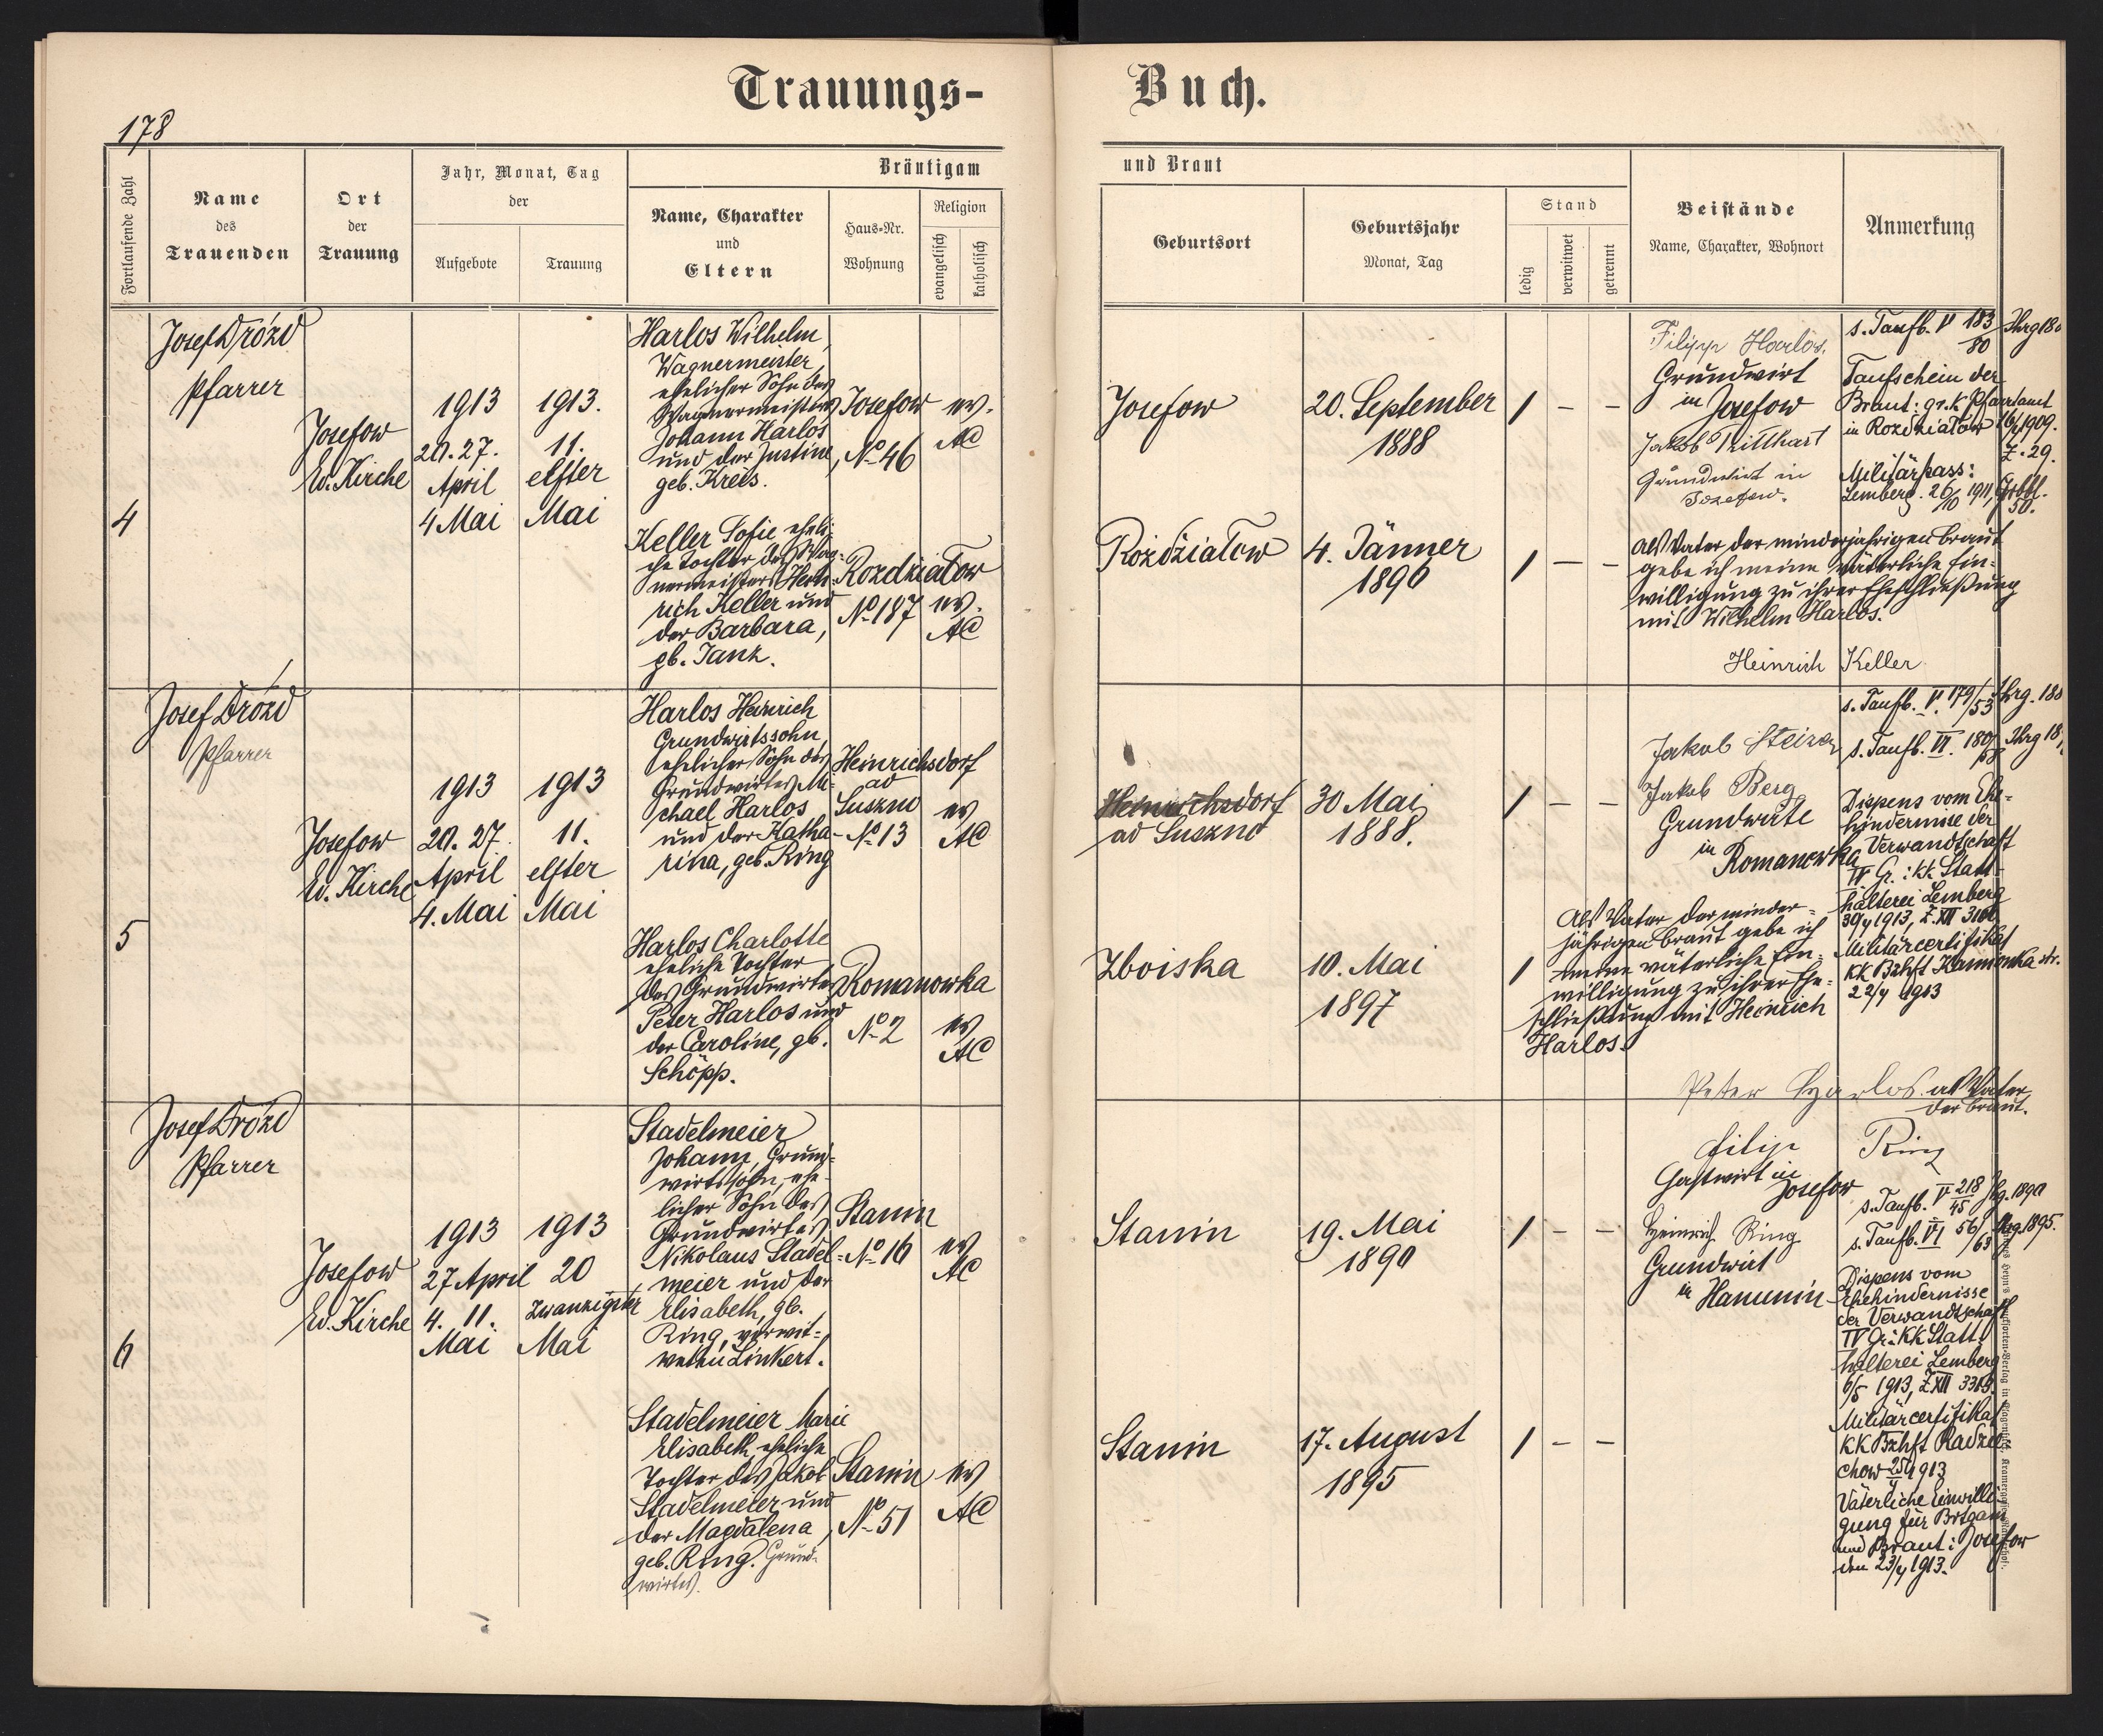 Trauungs-
Buch.
178
Fortlaufende Zahl
Name
des
Trauenden
Ort
der
Trauung
Jahr, Monat, Tag
der
Aufgebote
Trauung
Bräutigam
Name, Charakter
und
Eltern
Haus-Nr.
Wohnung
Religion
evangelisch
katholisch
und Braut
Geburtsort
Geburtsjahr
Monat, Tag
Stand
ledig
verwitwet
getrennt
Beistände
Name, Charakter, Wohnort
Anmerkung
4
Josef Drózd
Pfarrer
Josefow
Ev. Kirche
1913
20. 27.
April
4 Mai
1913.
11.
elfter
Mai
Harlos Wilhelm,
Wagnermeister,
ehelicher Sohn des
Wagnermeisters
Johann Harlos
und der Justine,
geb. Kreis.
Josefow
No 46
ev.
AC
Josefow
20. September
1888
/ – –
Filipp Harlos,
Grundwirt
in Josefow
Jakob Rillhart
Grundwirt in
Josefow.
s. Taufb. V 183
80
Taufschein der
Braut: gr. k. Pfarramt
in Rozdziatow
1909.
Z. 29.
Militärpass:
Lemberg. 26/10 1911,
50.
Keller Sofie eheli-
che Tochter des Wag-
nermeisters Hein-
rich Keller und
der Barbara,
gb. Janz.
Rozdziatow
No 187
ev.
AC
Rozdziatow
4. Jänner
1896
/ – –
Als Vater der minderjährigen Braut
gebe ich meine väterliche Ein-
willigung zu ihrer Eheschließung
mit Wilhelm Harlos.
Heinrich Keller
5
Josef Drózd
Pfarrer
Josefow
Ev. Kirche
1913
20. 27.
April
4. Mai
1913
11.
elfter
Mai
Harlos Heinrich
Grundwirtssohn,
ehelicher Sohn des
Grundwirtes Mi-
chael Harlos
und der Katha-
rina, geb. Ring
Heinrichsdorf
ad
Suszno
No 13
ev
AC
Heinrichsdorf
ad Suszno
30 Mai
1888.
/ – –
Jakob
Jakob Berg
Grundwirte
in
Romanowka
s. Taufb. V. 179/53
s. Taufb. VI. 180/
Dispens vom Ehe-
hindernisse der
Verwandtschaft
IV Gr.: kk. Statt-
halterei Lemberg
1913, Z. XII
Militärcertifikat
kk Bzhft Kamionka str.
22/4 1913
Harlos Charlotte
eheliche Tochter
des Grundwirtes
Peter Harlos und
der Caroline, gb.
Schöpp.
Romanowka
No 2
ev
AC
Zboiska
10. Mai
1897
/
Als Vater der minder-
jährigen Braut gebe ich
meine väterliche Ein-
willigung zu ihrer Ehe-
schließung mit Heinrich
Harlos.
Peter Harlos als Vater
der Braut.
6
Josef Drózd
Pfarrer
Josefow
Ev. Kirche
1913
27 April
4. 11.
Mai
1913
20
zwanzigster
Mai
Stadelmeier
Johann, Grund-
wirtssohn, ehe-
licher Sohn des
Grundwirtes
Nikolaus Stadel-
meier und der
Elisabeth, gb.
Ring, verwit-
weten Linkert.
Stanin
No 16
ev
AC
Stanin
19. Mai
1890
/ – –
Filip Ring
Gastwirt in
Josefow
Heinrich Ring
Grundwirt
in Hanunin
s. Taufb. V 218/45 Jhg. 1890
s. Taufb. VI 56/63 Jhg. 1895.
Dispens vom
Ehehindernisse
der Verwandtschaft
IV Gr.: kk Statt-
halterei Lemberg
6/5 1913, Z XII
Militärcertifikat
kk Bzhft Radzie-
chow 25/4 1913
Väterliche Einwilli-
gung für Brtgam
und Braut: Josefow
den 23/4 1913.
Stadelmeier Marie
Elisabeth, eheliche
Tochter des Jakob
Stadelmeier und
der Magdalena,
geb. Ring. Grund-
wirtes.
Stanin
No 51
ev
AC
Stanin
17. August
1895
/ – –